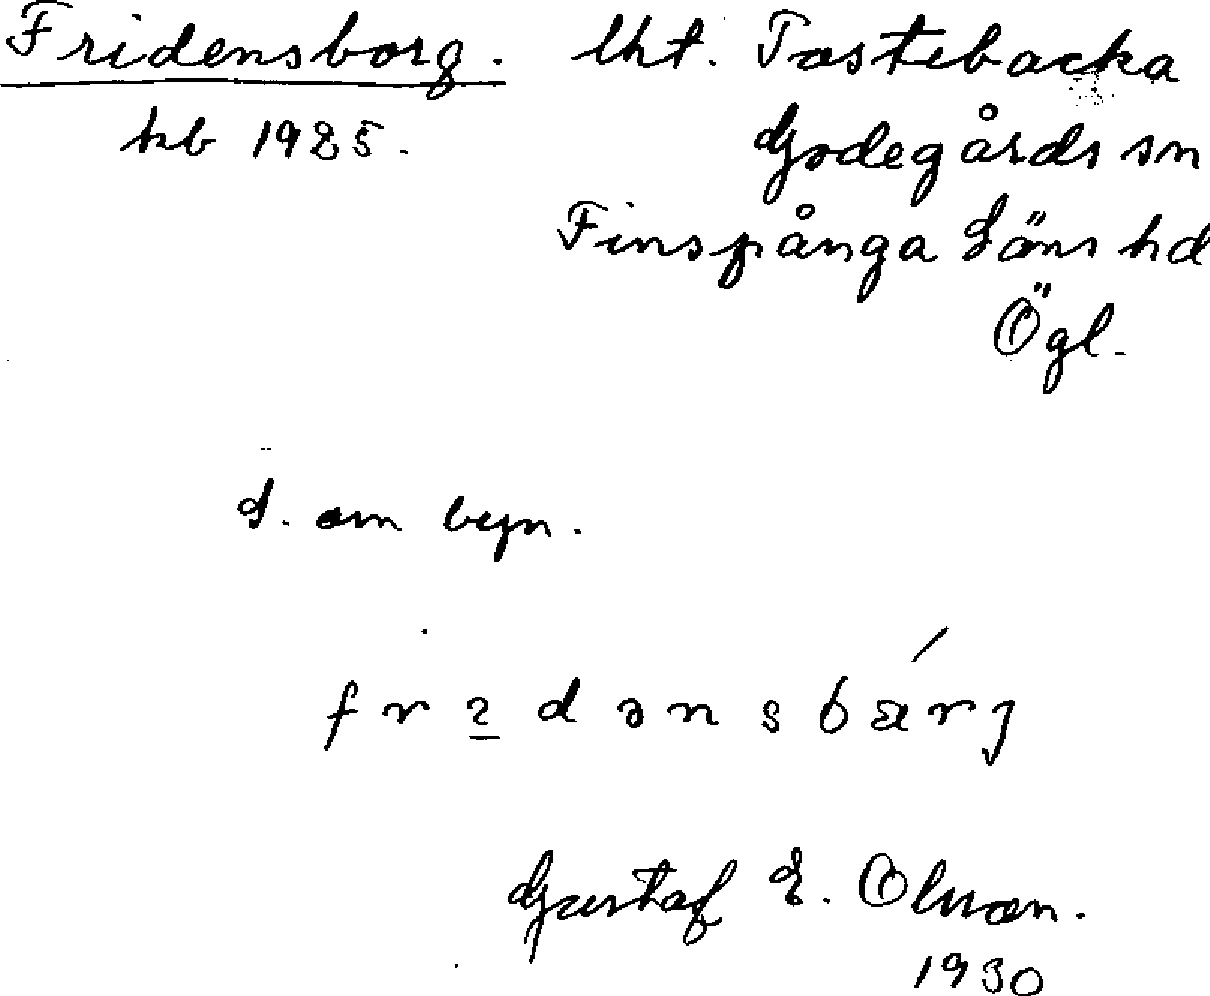 Fridensborg. lht. Tostebacka
kb 1925. Godegårds sn
Finspånga Läns hd
Ögl.
S. om byn.
Gustaf E. Olsson.
1930